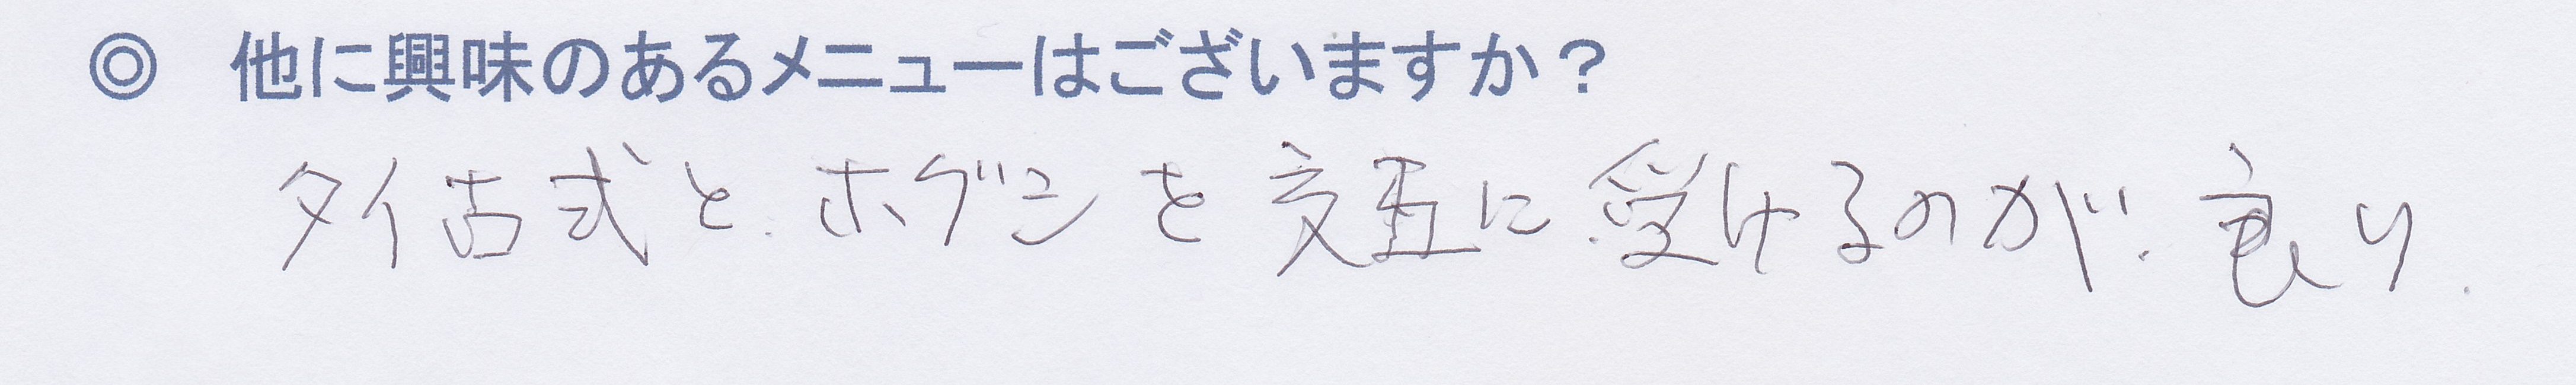 ◎ 他に興味のあるメニューはございますか？
タイ古式と.ホグシを交互に受けるのが.良い.